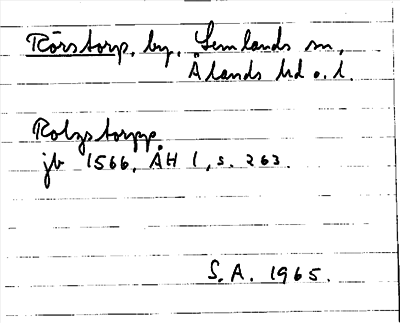 Rörstorp, by, Lemlands sn,
Ålands hd o. l.
Rolzstorpp
jb 1566, ÅH 1, s. 263.
S. A. 1965.